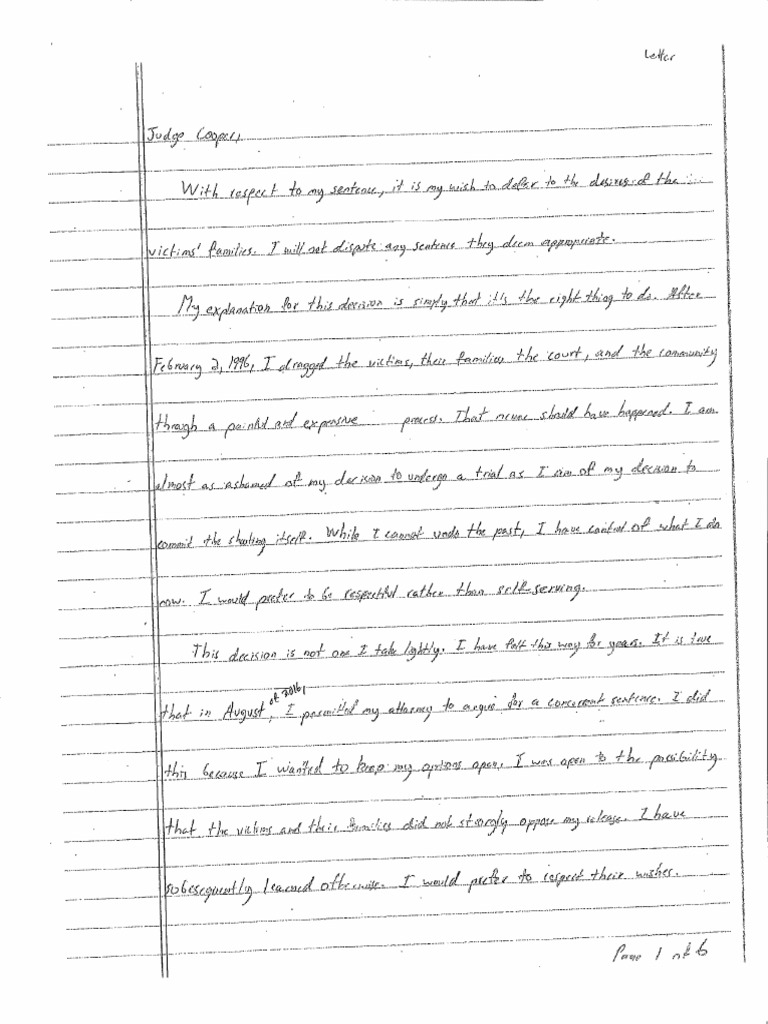 Letter
Judge Cooper,
With respect to my sentence, it is my wish to defer to the desires of the
victims' families. I will not dispute any sentence they deem appropriate.
My explanation for this decision is simply that it's the right thing to do. After
February 2, 1996, I dragged the victims, their families the court, and the community
through a painful and expensive process. That never should have happened. I am
almost as ashamed of my decision to undergo a trial as I am of my decision to
commit the shooting itself. While I cannot undo the past, I have control of what I do
now. I would prefer to be respectful rather than self-serving.
This decision is not one I take lightly. I have felt this way for years. It is true
that in August of 2016, I permitted my attorney to argue for a concurrent sentence. I did
this because I wanted to keep my options open. I was open to the possibility
that the victims and their families did not strongly oppose my release. I have
subesequently learned otherwise. I would prefer to respect their wishes.
Page 1 of 6